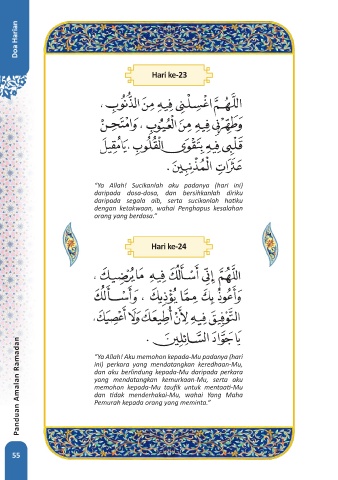 Doa Harian
Hari ke-23
اَللّٰهُمَّ اغْسِلْنِيْ فِيهِ مِنَ الذُّنُوْبِ ،
وَطَهِّرْنِيْ فِيهِ مِنَ الْعُيُوْبِ ، وَامْتَحِنْ
قَلْبِيْ فِيهِ بِتَقْوَى الْقُلُوْبِ ، يَامُقِيْلَ
عَثَرَاتِ الْمُذْنِبِيْنَ .
"Ya Allah! Sucikanlah aku padanya (hari ini)
daripada dosa-dosa, dan bersihkanlah diriku
daripada segala aib, serta sucikanlah hatiku
dengan ketakwaan, wahai Penghapus kesalahan
orang yang berdosa."
Hari ke-24
اَللّٰهُمَّ إِنِّيْ أَسْأَلُكَ فِيهِ مَا يُرْضِيْكَ ،
وَأَعُوْذُ بِكَ مِمَّا يُؤْذِيْكَ ، وَأَسْأَلُكَ
التَّوْفِيْقَ فِيهِ لِأَنْ أُطِيْعَكَ وَلَا أَعْصِيَكَ ،
يَا جَوَّادَ السَّائِلِيْنَ .
"Ya Allah! Aku memohon kepada-Mu padanya (hari
ini) perkara yang mendatangkan keredhaan-Mu,
dan aku berlindung kepada-Mu daripada perkara
yang mendatangkan kemurkaan-Mu, serta aku
memohon kepada-Mu taufik untuk mentaati-Mu
dan tidak menderhakai-Mu, wahai Yang Maha
Pemurah kepada orang yang meminta."
Panduan Amalan Ramadan
55